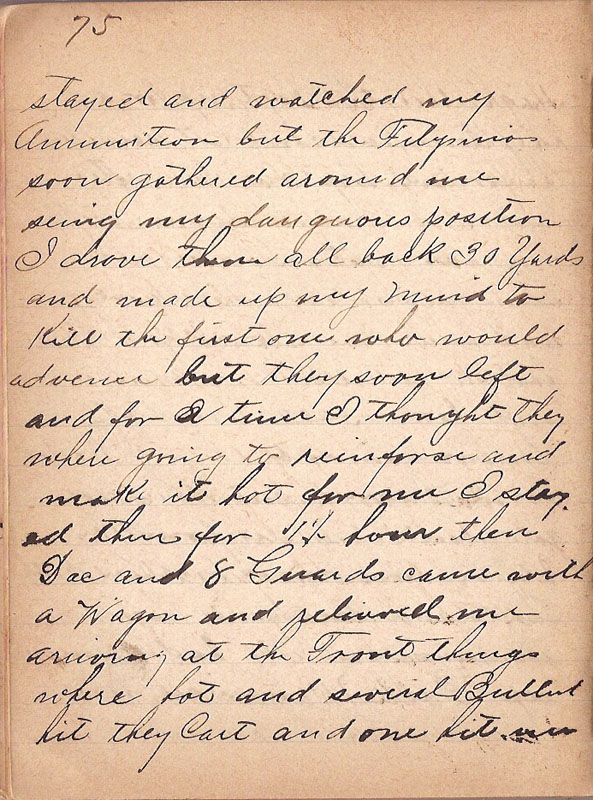 75
stayed and watched my
Ammunition but the Filipinos
soon gathered around me
seing my dangerous position
I drove them all back 30 Yards
and made up my mind to
Kill the first one who would
advence but they soon left
and for a time I thought they
where going to reinforse and
make it hot for me I stay
ed there for 1½ hour then
Doc and 8 Guards came with
a Wagon and relieved me
arriving at the Front things
where hot and several Bullets
hit they Cart and one hit my